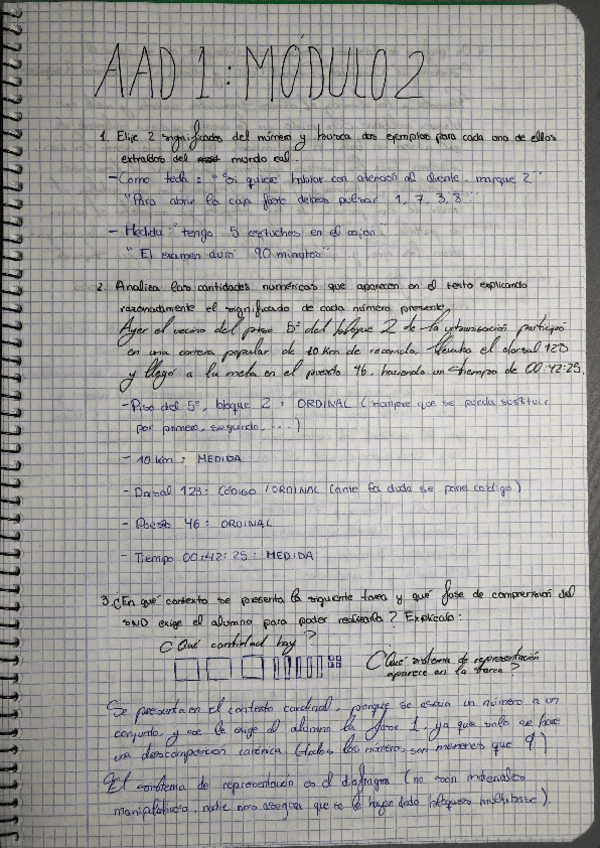 AAD 1: MÓDULO 2
1. Elije 2 significados del número y busca dos ejemplos para cada uno de ellos
extraídos del mundo real.
- Como tecla: "Si quiere hablar con atención al cliente, marque 2"
"Para abrir la caja fuerte debes pulsar 1, 7, 3, 8"
- Medida: "tengo 5 estuches en el cajón"
"El examen duró 90 minutos"
2. Analiza las cantidades numéricas que aparecen en el texto explicando
razonadamente el significado de cada número presente.
Ayer el vecino del piso 5º del bloque 2 de la urbanización participó
en una carrera popular de 10 Km de recorrido. Llevaba el dorsal 123
y llegó a la meta en el puesto 46, haciendo un tiempo de 00:42:25.
- Piso del 5º, bloque 2: ORDINAL (siempre que se pueda sustituir
por primero, segundo, ...)
- 10 Km: MEDIDA
- Dorsal 123: CÓDIGO / ORDINAL (ante la duda se pone código)
- Puesto 46: ORDINAL
- Tiempo 00:42:25: MEDIDA
3. ¿En qué contexto se presenta la siguiente tarea y qué fase de comprensión del
SND exige el alumno para poder realizarla? Explícalo:
¿Qué cantidad hay?
¿Qué sistema de representación
aparece en la tarea?
Se presenta en el contexto cardinal, porque se asocia un número a un
conjunto, y se le exige al alumno la fase 1, ya que solo se hace
una descomposición canónica (todos los números son menores que 9)
El sistema de representación es el diagrama (no son materiales
manipulativos, nadie nos asegura que se le haya dado bloques multibase).